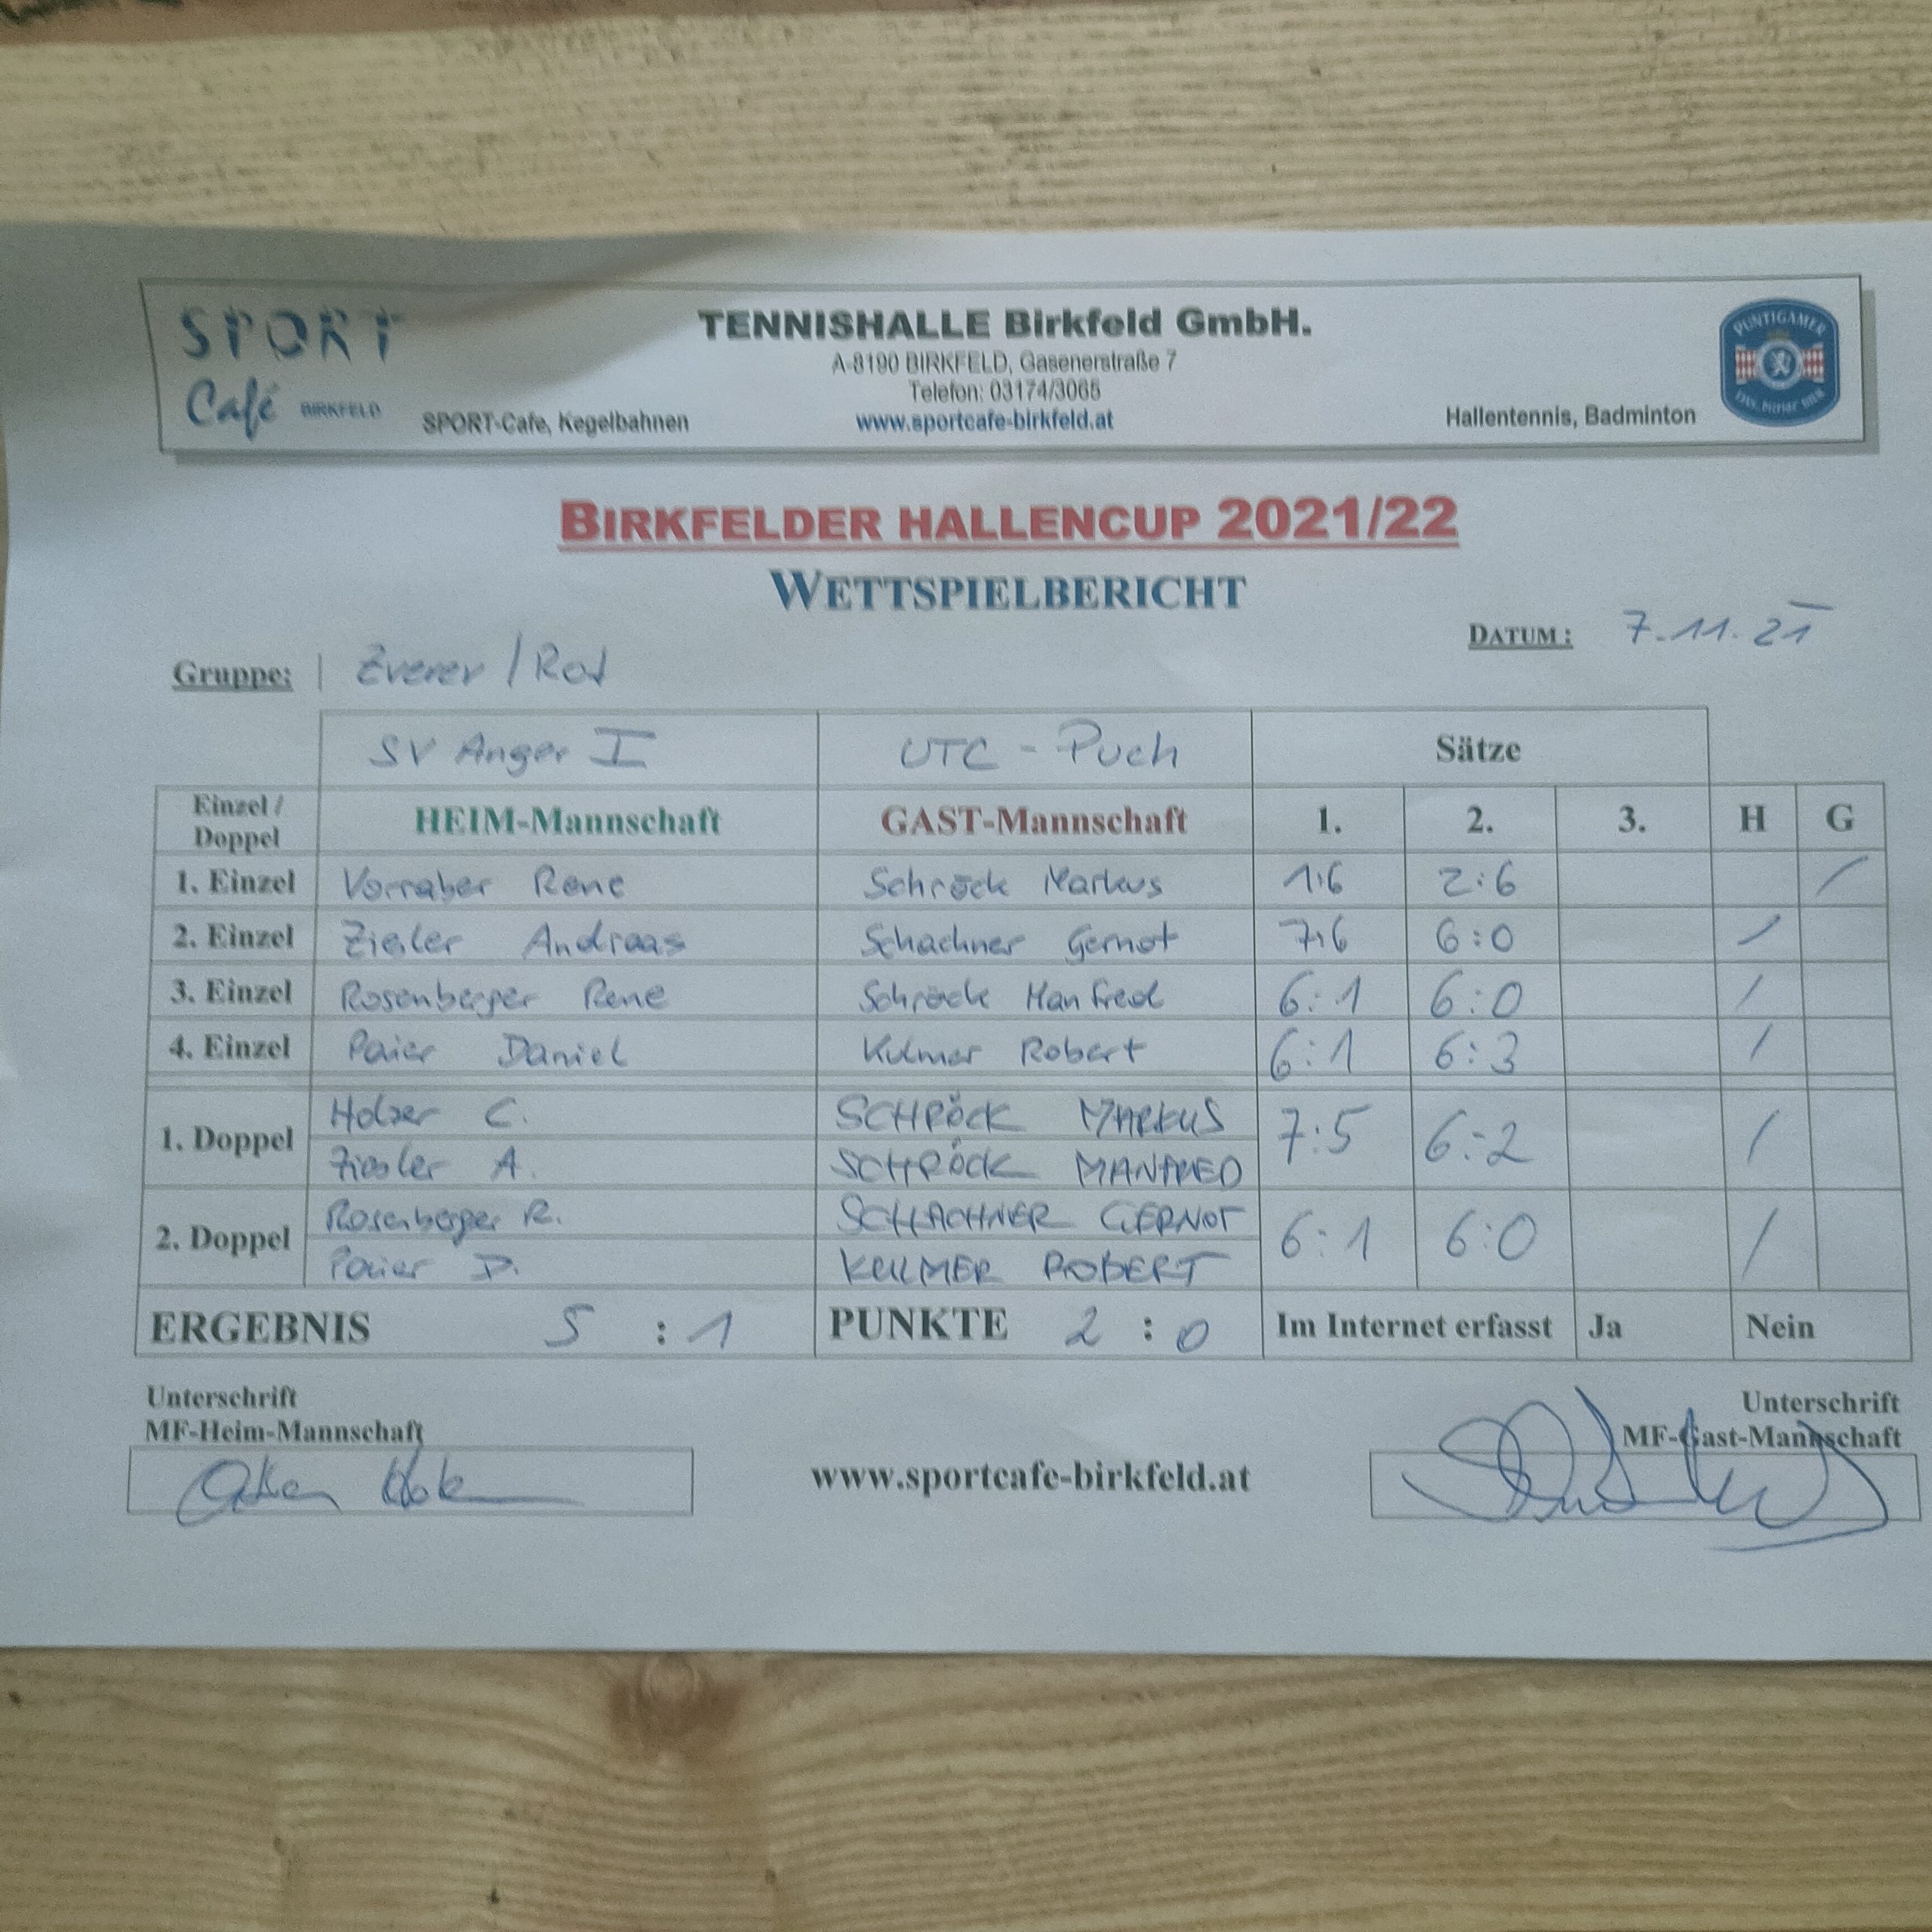 SPORT
Café BIRKFELD
TENNISHALLE Birkfeld GmbH.
A-8190 BIRKFELD, Gasenerstraße 7
Telefon: 03174/3065
SPORT-Cafe, Kegelbahnen www.sportcafe-birkfeld.at Hallentennis, Badminton
PUNTIGAMER
BIRKFELDER HALLENCUP 2021/22
WETTSPIELBERICHT
DATUM: 7.11.21
Gruppe: Zverev / Rot
SV Anger I UTC - Puch Sätze
Einzel / Doppel HEIM-Mannschaft GAST-Mannschaft 1. 2. 3. H G
1. Einzel Vorraber Rene Schröck Markus 1:6 2:6 /
2. Einzel Ziesler Andreas Schachner Gernot 7:6 6:0 /
3. Einzel Rosenberger Rene Schröck Manfred 6:1 6:0 /
4. Einzel Paier Daniel Kulmer Robert 6:1 6:3 /
1. Doppel Holzer C. SCHRÖCK MARKUS 7:5 6:2 /
Ziesler A. SCHRÖCK MANFRED
2. Doppel Rosenberger R. SCHACHNER GERNOT 6:1 6:0 /
Paier D. KULMER ROBERT
ERGEBNIS 5 : 1 PUNKTE 2 : 0 Im Internet erfasst Ja Nein
Unterschrift Unterschrift
MF-Heim-Mannschaft MF-Gast-Mannschaft
www.sportcafe-birkfeld.at